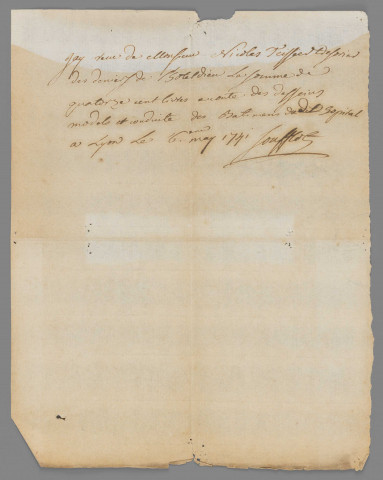 jay reçu de Monsieur Nicolas Tresorier
des deniers de hotel Dieu La somme de
quatorze cent livres acompte des desseins
models et conduitte des Batimens dud. hopital
a Lyon Le 6e may 1741 Soufflot